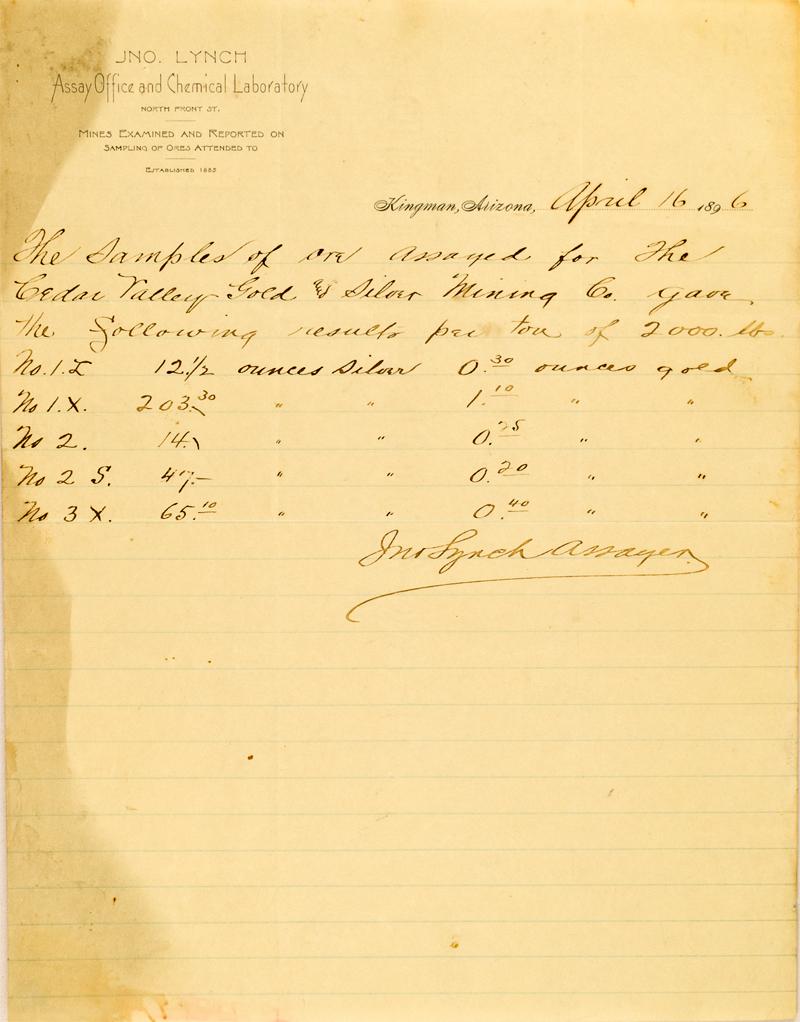 JNO. LYNCH
Assay Office and Chemical Laboratory
NORTH FRONT ST.
MINES EXAMINED AND REPORTED ON
SAMPLING OF ORES ATTENDED TO
ESTABLISHED 1885
Kingman, Arizona, April 16 1896
The Samples of ore assayed for The
Cedar Valley Gold & Silver Mining Co. gave
the following results per ton of 2000. lbs.
No. 1. 12 1/2 ounces Silver 0.30 ounces gold
No 1. X. 203.30 " " 1.10 " "
No 2. 14. " " 0.25 " "
No 2 S. 47.– " " 0.20 " "
No 3 X. 65.10 " " 0.40 " "
Jno Lynch Assayer.